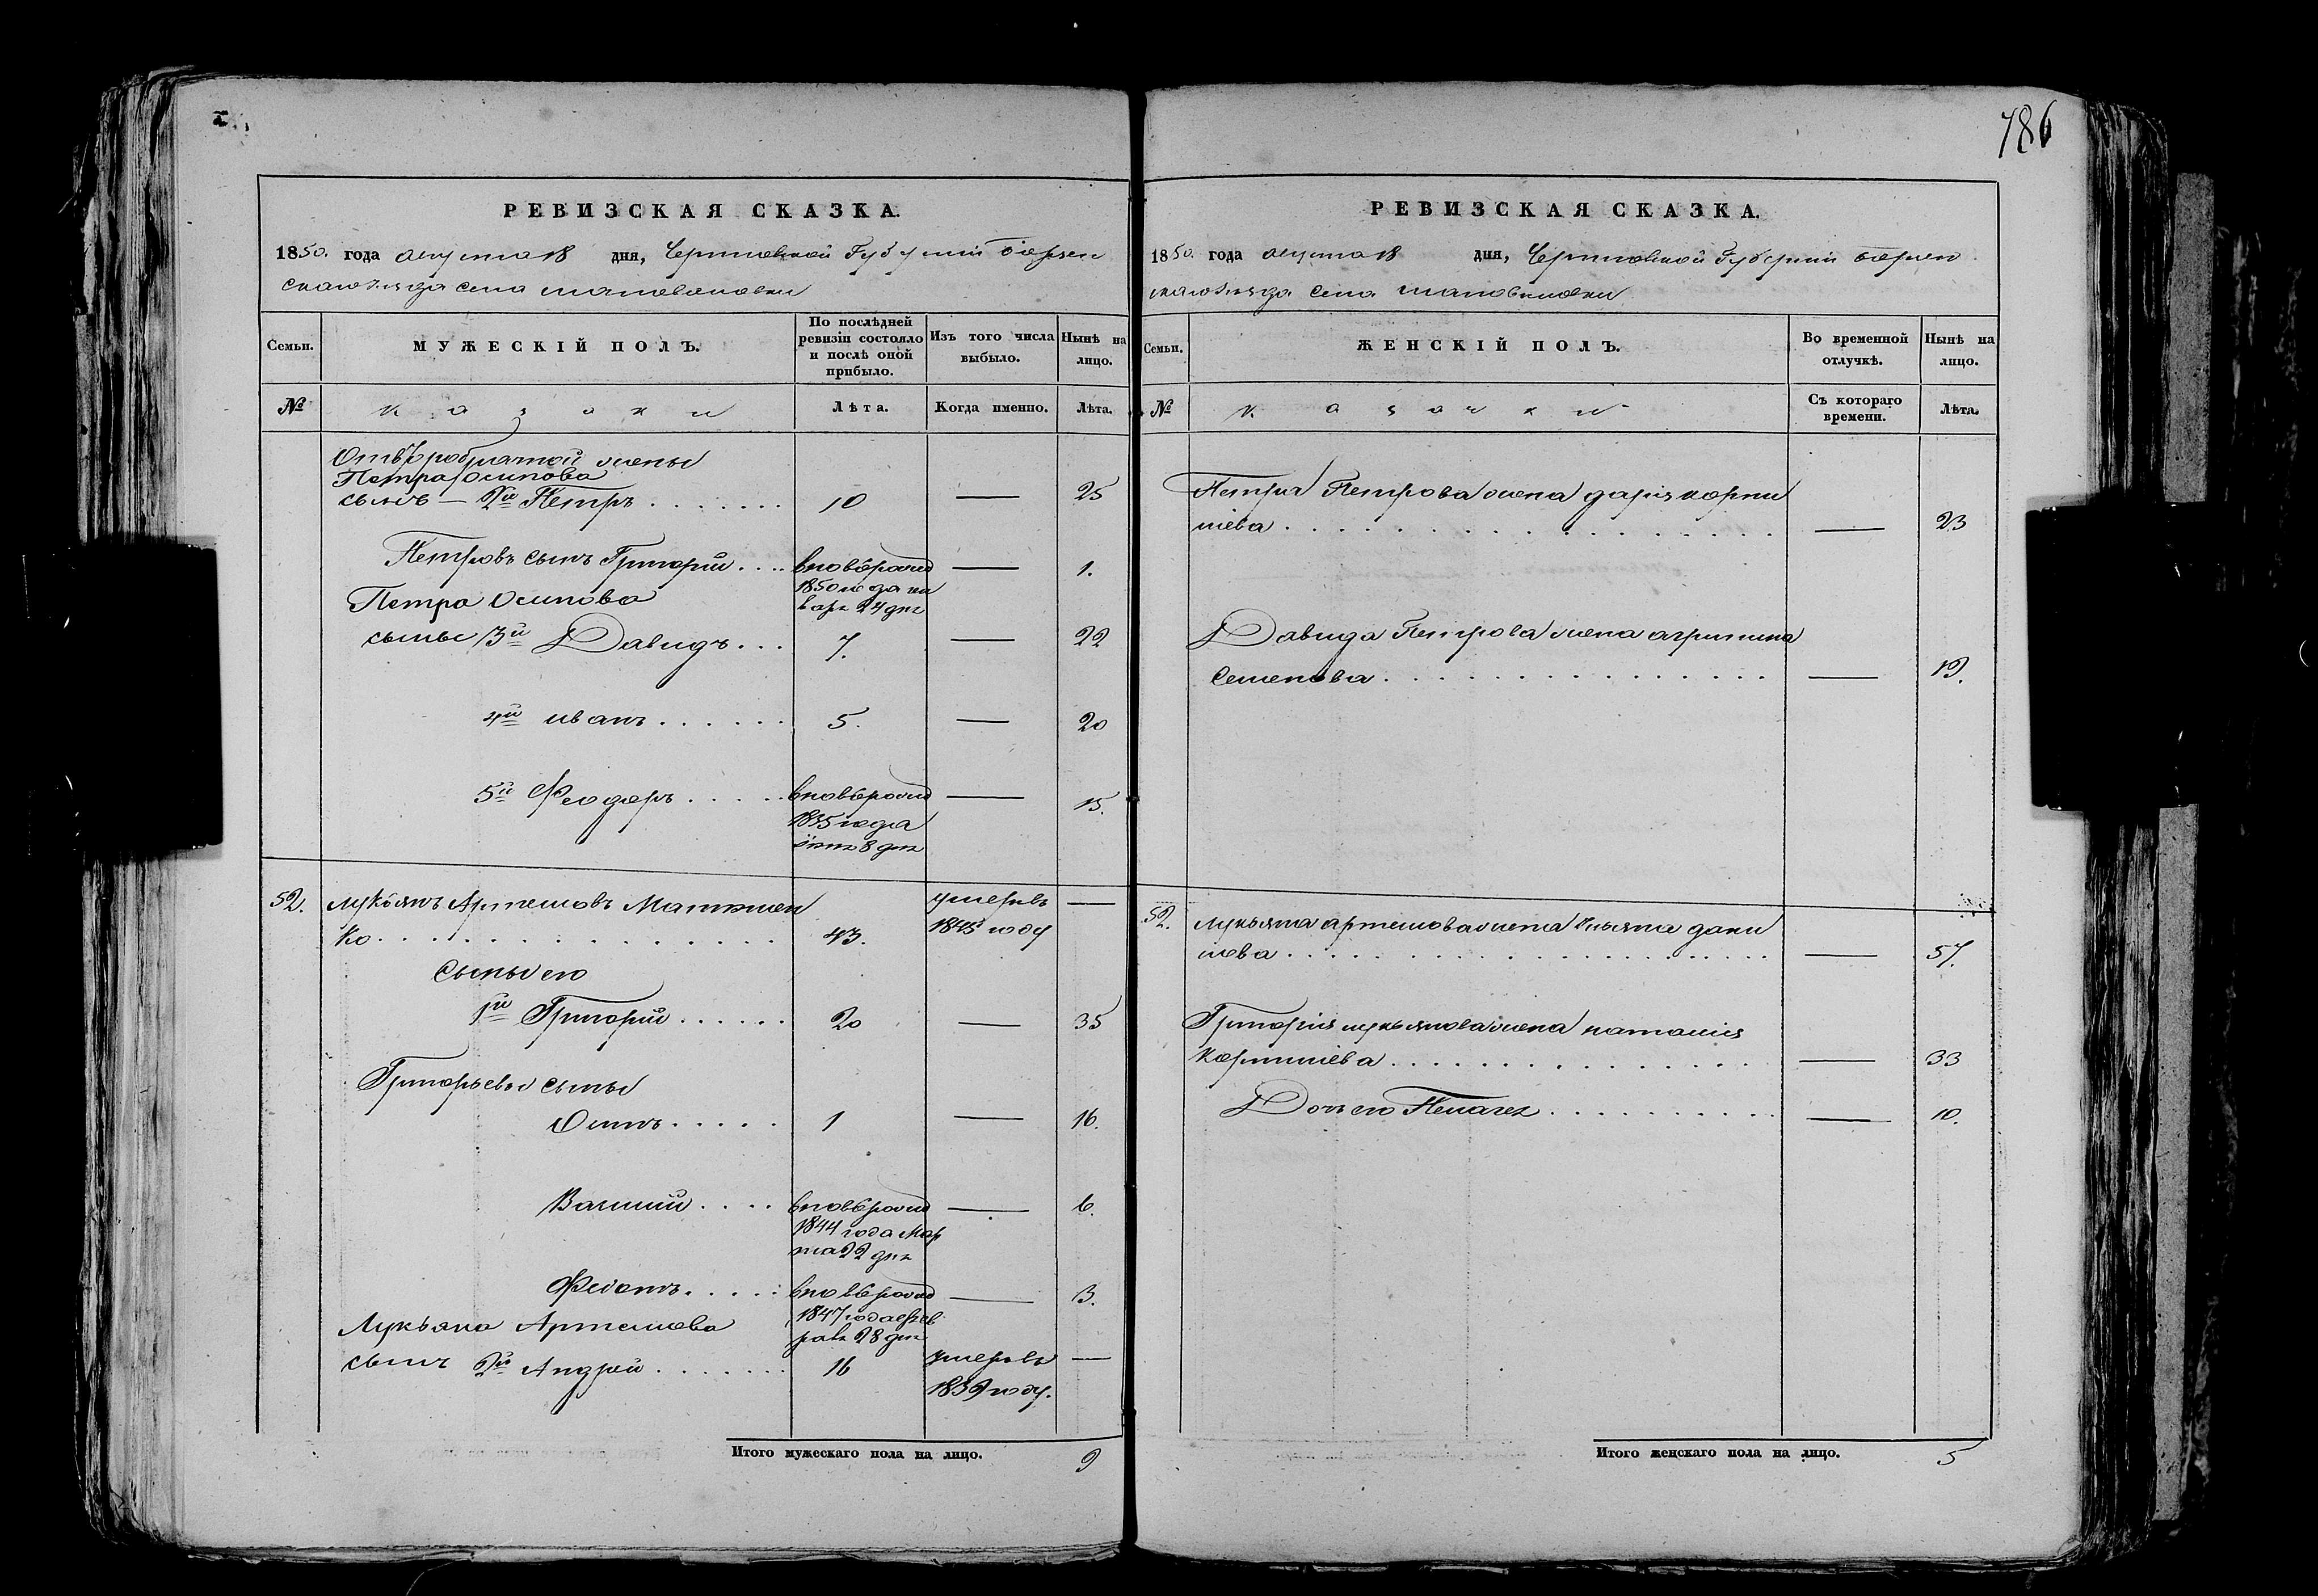 786
РЕВИЗСКАЯ СКАЗКА.
1850. года августа 18 дня, Черниговской Губернии Борзен
скаго уезда села
МУЖЕСКІЙ ПОЛЪ.
Семьи.
По послѣдней ревизіи состояло и послѣ оной прибыло.
Изъ того числа выбыло.
Нынѣ на лицо.
№
казаки
Лѣта.
Когда именно.
Лѣта.
жены
Петра Осипова
сынъ — 2й Петръ 10 — 25
Петровъ сынъ Григорій вновьрожд — 1.
1850 года ян
варя 24 дня
Петра Осипова
сыны 3й Давидъ 7. — 22
4й иванъ 5. — 20
5й Феодоръ вновьрожд — 15.
1835 года
8 дня
52. лукьянъ Артемовъ Матюшен умеръ —
ко 43. 1845 году
Сыны его
1й Григорій 20 — 35
Григорьевы сыны
Осипъ 1 — 16.
Василий вновьрожд — 6.
1844 года мар
та 22 дня
Федотъ вновьрожд — 3.
1847 года фев
раля 28 дня
Лукьяна Артемова
сынъ 2й Андрей 16 умеръ —
1839 году.
Итого мужескаго пола на лицо. 9
РЕВИЗСКАЯ СКАЗКА.
1850. года августа 18 дня, Черниговской Губернии Борзен
скаго уезда села
Семьи.
ЖЕНСКІЙ ПОЛЪ.
Во временной отлучкѣ.
Нынѣ на лицо.
№
казачки
Съ котораго времени.
Лѣта.
Петра Петрова жена дарія корни
лиева — 23
Давида Петрова жена агрипина
Семенова — 19.
52. лукьяна артемова жена ульяна дани
лова — 57.
Григорія лукьянова жена наталия
Корнилиева — 33
Дочь его Пелагея — 10.
Итого женскаго пола на лицо. 5